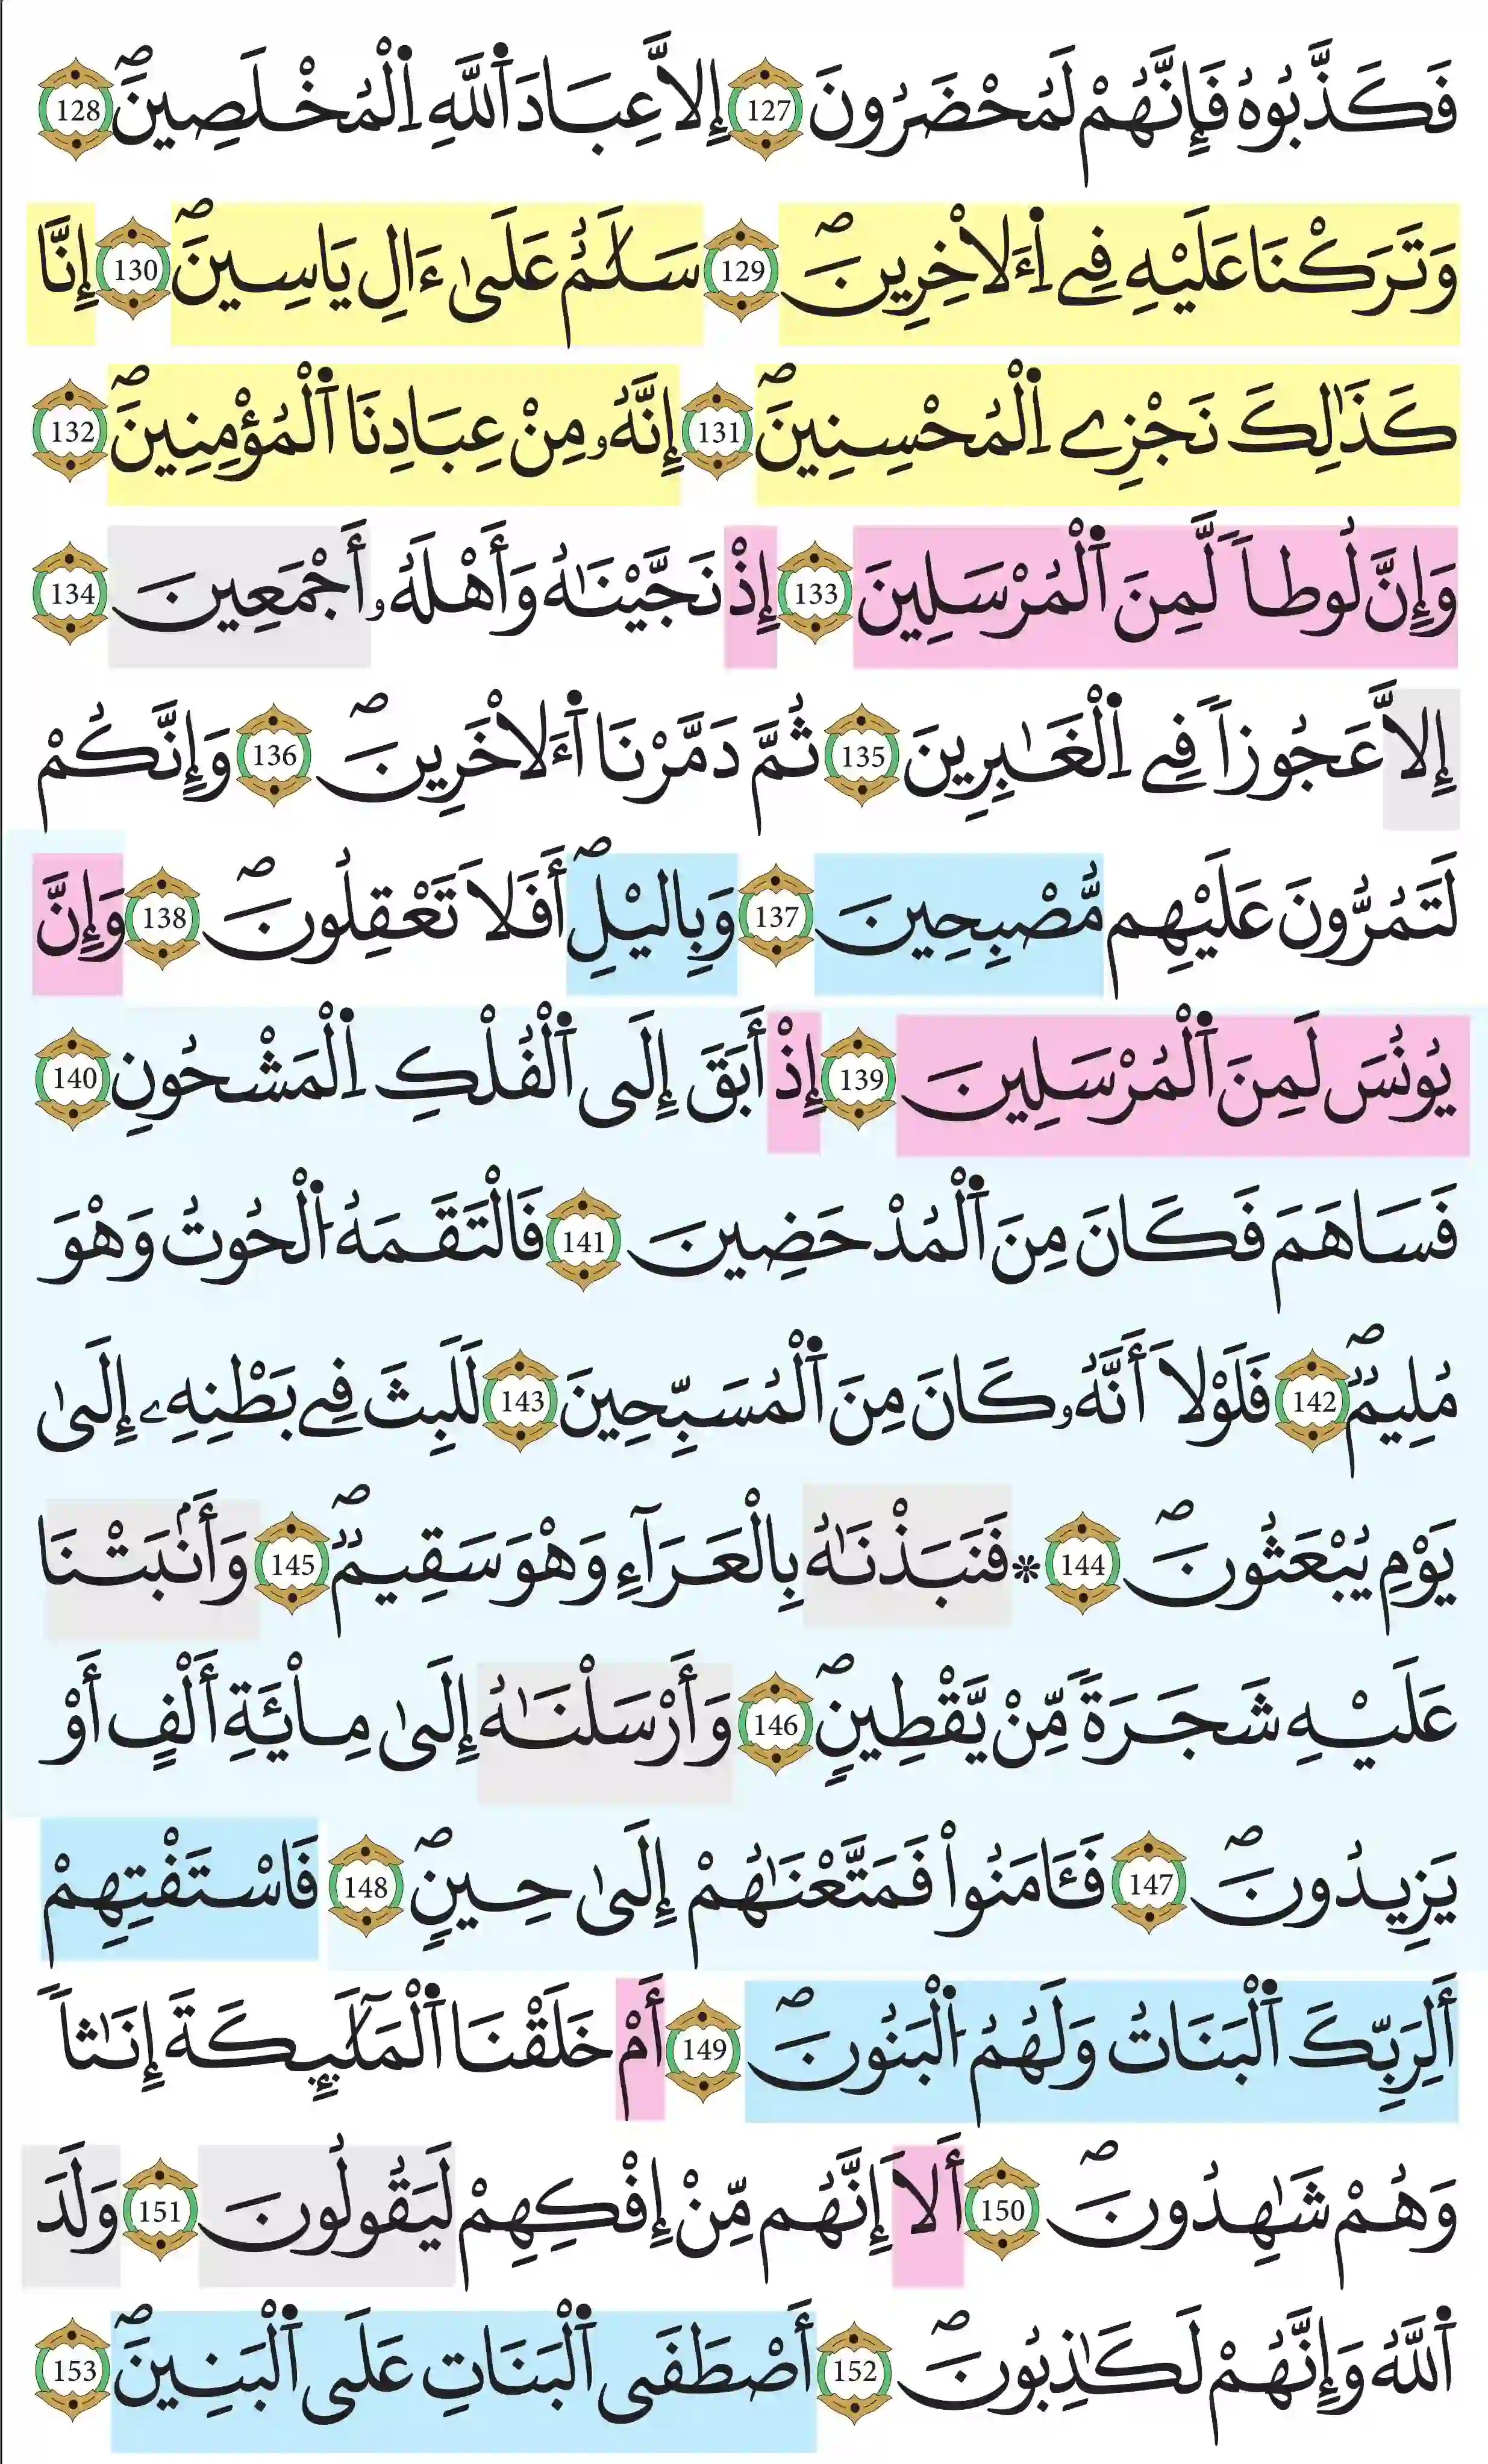 فَكَذَّبُوهُ فَإِنَّهُمْ لَمُحْضَرُونَ 127 إِلاَّ عِبَادَ اَ۬للَّهِ اِ۬لْمُخْلَصِينَۖ 128
وَتَرَكْنَا عَلَيْهِ فِے اِ۬ءَلاْخِرِينَۖ 129 سَلَٰمٌ عَلَىٰ ءَالِ يَاسِينَۖ 130 إِنَّا
كَذَٰلِكَ نَجْزِے اِ۬لْمُحْسِنِينَۖ 131 إِنَّهُۥ مِنْ عِبَادِنَا اَ۬لْمُؤْمِنِينَۖ 132
وَإِنَّ لُوطاٗ لَّمِنَ اَ۬لْمُرْسَلِينَ 133 إِذْ نَجَّيْنَٰهُ وَأَهْلَهُۥ أَجْمَعِينَ 134
إِلاَّ عَجُوزاٗ فِے اِ۬لْغَٰبِرِينَ 135 ثُمَّ دَمَّرْنَا اَ۬ءَلاْخَرِينَۖ 136 وَإِنَّكُمْ
لَتَمُرُّونَ عَلَيْهِم مُّصْبِحِينَ 137 وَبِاليْلِۖ أَفَلاَ تَعْقِلُونَۖ 138 وَإِنَّ
يُونُسَ لَمِنَ اَ۬لْمُرْسَلِينَ 139 إِذْ أَبَقَ إِلَى اَ۬لْفُلْكِ اِ۬لْمَشْحُونِ 140
فَسَاهَمَ فَكَانَ مِنَ اَ۬لْمُدْحَضِينَ 141 فَالْتَقَمَهُ اُ۬لْحُوتُ وَهْوَ
مُلِيمٞۖ 142 فَلَوْلاَ أَنَّهُۥ كَانَ مِنَ اَ۬لْمُسَبِّحِينَ 143 لَلَبِثَ فِے بَطْنِهِۦ إِلَىٰ
يَوْمِ يُبْعَثُونَۖ 144 * فَنَبَذْنَٰهُ بِالْعَرَآءِ وَهْوَ سَقِيمٞۖ 145 وَأَنۢبَتْنَا
عَلَيْهِ شَجَرَةٗ مِّنْ يَّقْطِينٖۖ 146 وَأَرْسَلْنَٰهُ إِلَىٰ مِاْئَةِ أَلْفٍ أَوْ
يَزِيدُونَۖ 147 فَـَٔامَنُواْ فَمَتَّعْنَٰهُمْ إِلَىٰ حِينٖۖ 148 فَاسْتَفْتِهِمْ
أَلِرَبِّكَ اَ۬لْبَنَاتُ وَلَهُمُ اُ۬لْبَنُونَۖ 149 أَمْ خَلَقْنَا اَ۬لْمَلَٰٓئِكَةَ إِنَٰثاٗ
وَهُمْ شَٰهِدُونَۖ 150 أَلاَ إِنَّهُم مِّنْ إِفْكِهِمْ لَيَقُولُونَ 151 وَلَدَ
اَ۬للَّهُ وَإِنَّهُمْ لَكَٰذِبُونَۖ 152 أَصْطَفَى اَ۬لْبَنَاتِ عَلَى اَ۬لْبَنِينَۖ 153